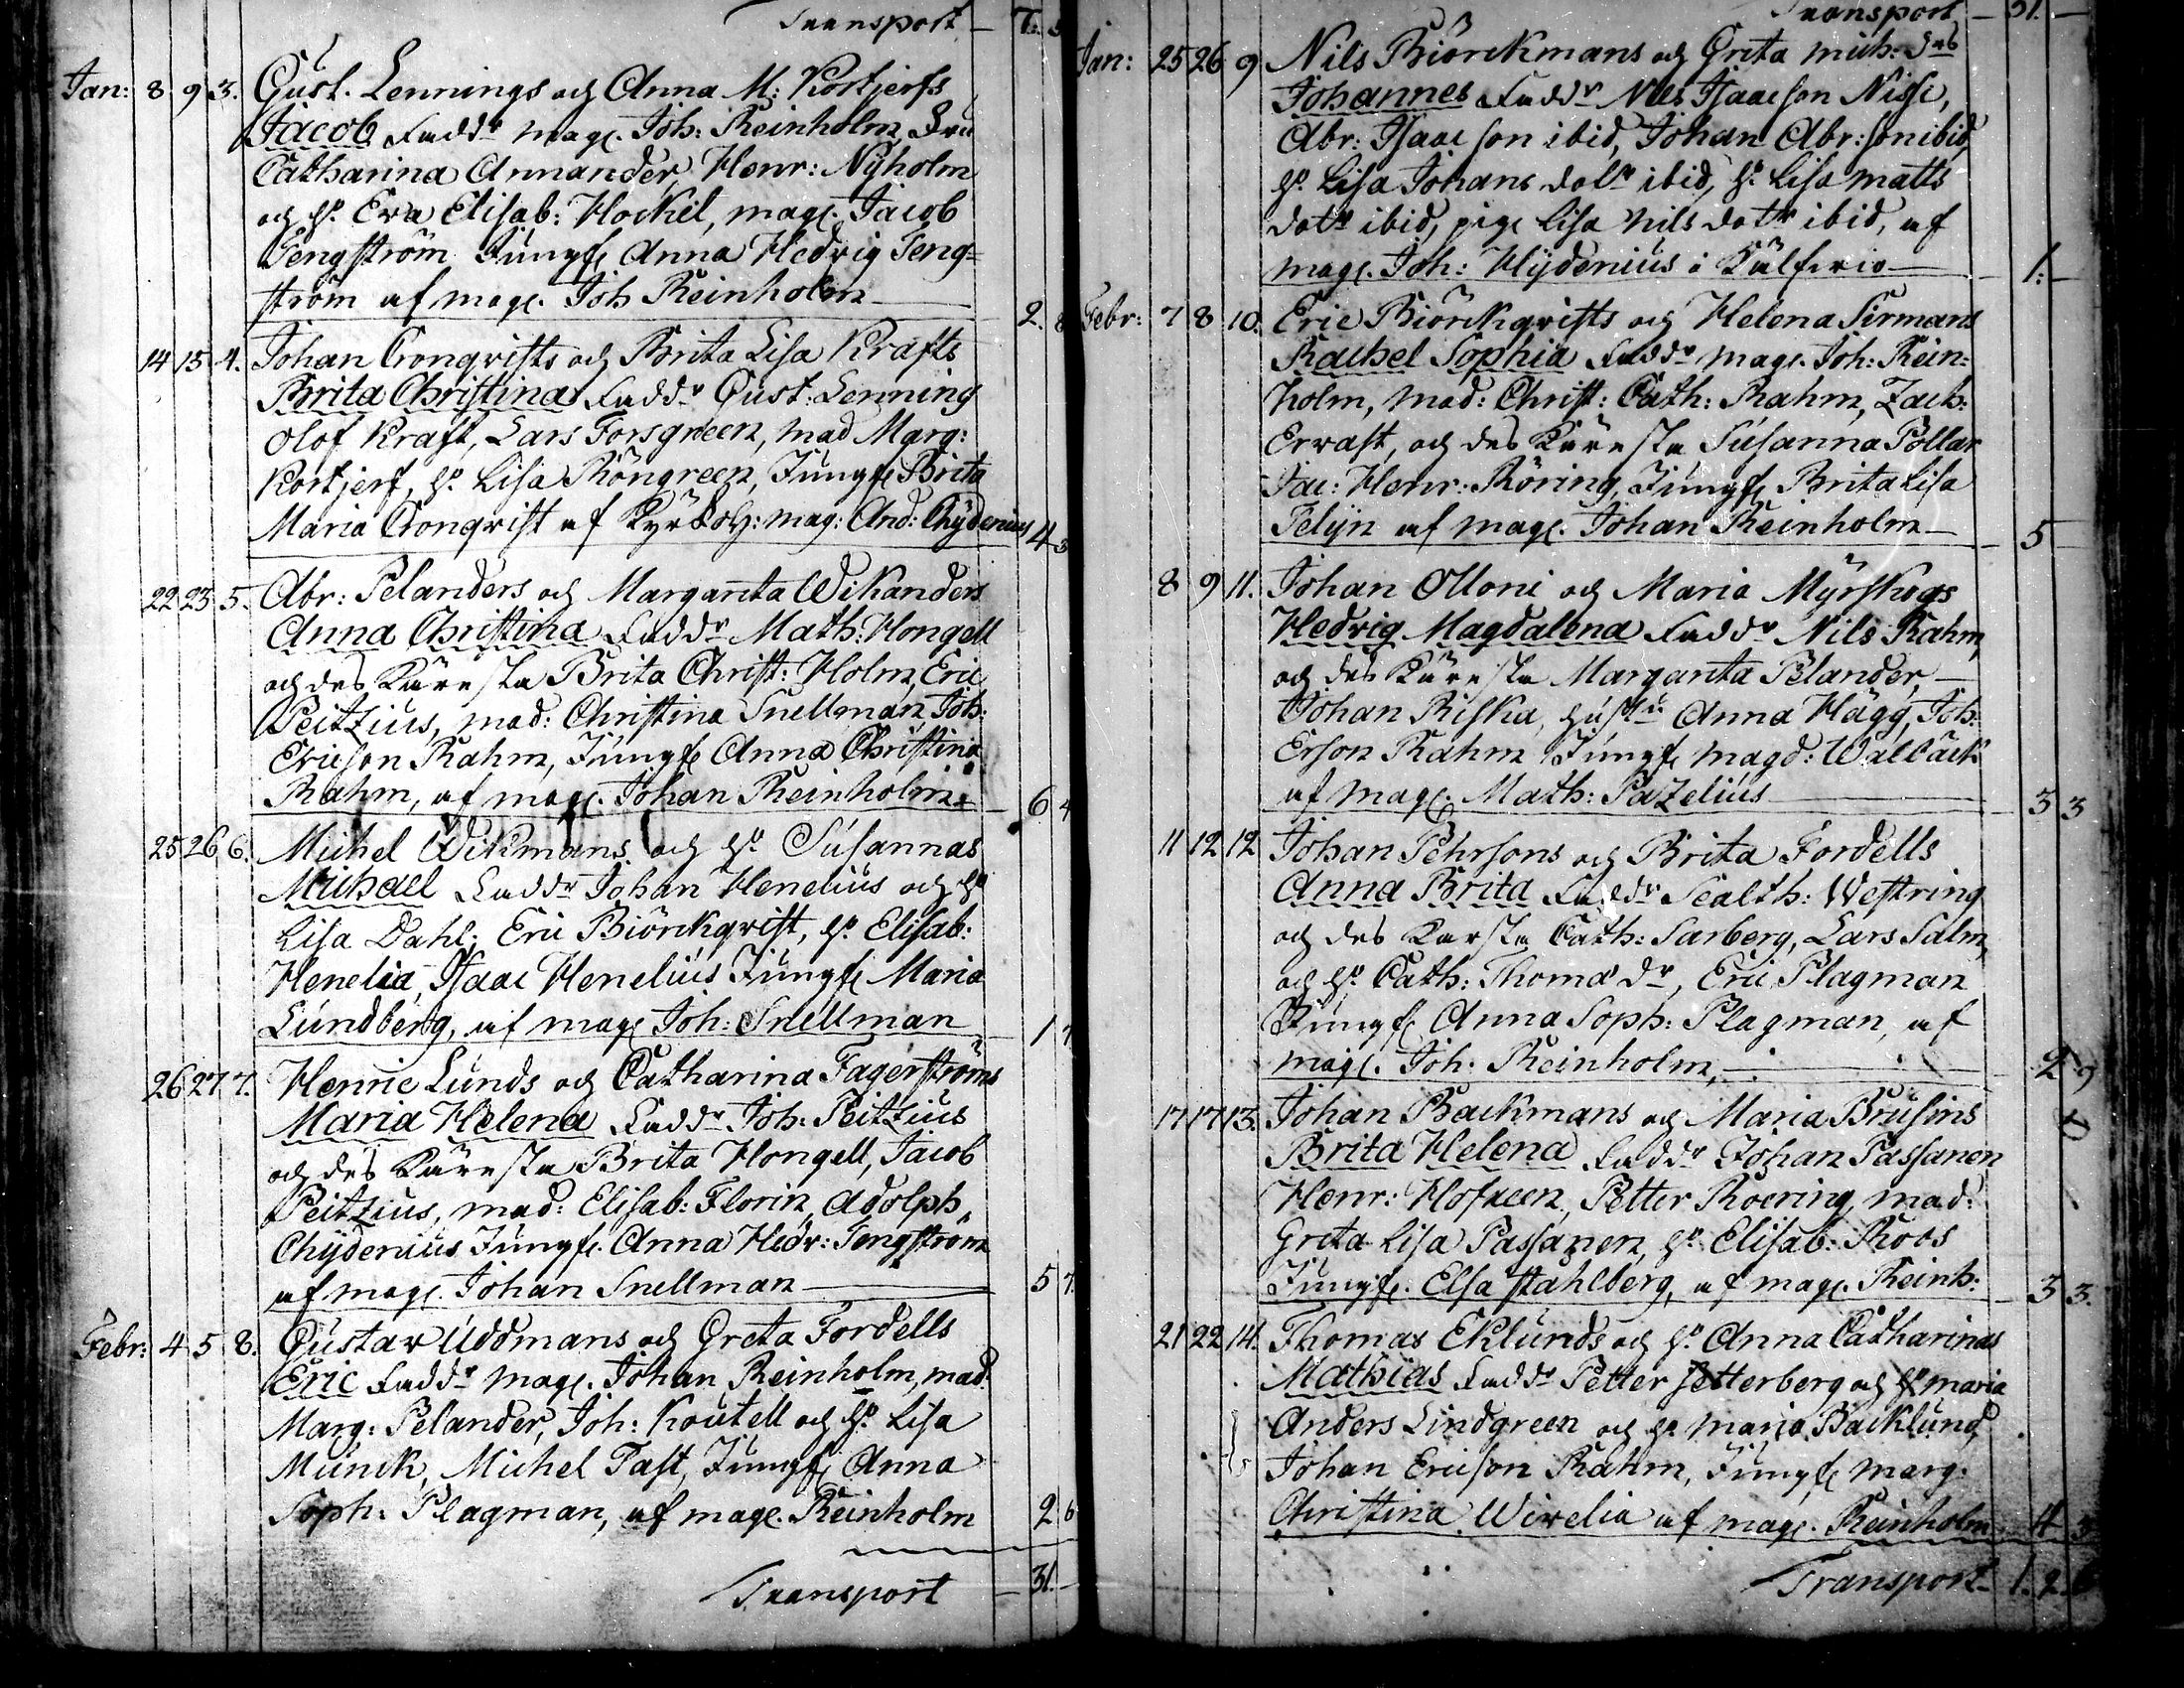 Transport — 7. 5
Jan: 8 9 3. Gust. Lennings och Anna M: Kortjerfs
Jacob Faddr mag. Joh: Reinholm, Fru
Catharina Annander, Henr: Nyholm
och H. Eva Elisab: Hockil, mag. Jacob
Tengström Jungf. Anna Hedvig Teng=
ström af mag. Joh Reinholm — 2. 8
14 15 4. Johan Cronqvists och Brita Lisa Krafts
Brita Christina Faddr Gust: Lenning
Olof Kraft, Lars Forsgreen, mad Marg:
Kortjerf, H. Lisa Röngreen, Jungf. Brita
Maria Cronqvist af Kyrkoh: mag: And: Chydenius 4 3
22 23 5. Abr: Pelanders och Margareta Wikanders
Anna Christina Faddr Math: Hongell
och des Käresta Brita Christ: Holm, Eric
Peitzius, mad: Christina Snellman, Joh:
Ericson Rahm, Jungf. Anna Christina
Rahm, af mag. Johan Reinholm. — 6 4
25 26 6. Michel Wikmans och H. Susannas
Michael Faddr Johan Henelius och H.
Lisa Dahl, Eric Biörckqvist, H. Elisab:
Henelia, Isaac Henelius Jungf. Maria
Lundberg, af mag. Joh: Snellman — 1 7
26 27 7. Henric Lunds och Catharina Fagerströms
Maria Helena Faddr Joh: Peitzius
och des Käresta Brita Hongell, Jacob
Peitzius, mad: Elisab: Florin, Adolph
Chydenius Jungf. Anna Hedv: Tengström
af mag. Johan Snellman — 5 7.
Febr: 4 5 8. Gustav Uddmans och Greta Fordells
Eric Faddr mag. Johan Reinholm, mad.
Marg: Pelander, Joh: Koutell och H. Lisa
Munck, Michel Tast, Jungf. Anna
Soph: Plagman, af mag. Reinholm 2 6
Transport — 31. —
Transport — 31. —
Jan: 25 26 9 Nils Biörckmans och Greta Mich: drs
Johannes Faddr Nils Isaacson Nisse,
Abr: Isaacson ibid, Johan Abr:son ibid,
H. Lisa Johans dotr ibid, H. Lisa Matts
dotr ibid, pig. Lisa Nils dotr ibid, af
mag. Joh: Hydenius i Kälfvio — 1: —
Febr: 7 8 10. Eric Biörckqvists och Helena Sirmans
Rachel Sophia Faddr mag. Joh: Rein=
holm, mad: Christ: Cath: Rahm, Zach:
Ervast, och des Käresta Susanna Pollar
Jac: Henr: Röring, Jungf. Brita Lisa
Pelijn af mag. Johan Reinholm — 5 —
8 9 11. Johan Olloni och Maria Myrskogs
Hedvig Magdalena Faddr Nils Rahm,
och des Käresta Margareta Pelander, —
Johan Riska, hustru Anna Hägg, Joh:
Erson Rahm Jungf. Magd: Wallbäck
af mag. Math: Pazelius — 3 3
11 12 12 Johan Pehrsons och Brita Fordells
Anna Brita Faddr Sealth: Westring
och des Kärsta Cath: Sarberg, Lars Salm,
och H. Cath: Thomæ dr, Eric Plagman
Jungf. Anna Soph: Plagman, af
mag. Joh: Reinholm, — 2 9
17 17 13. Johan Backmans och Maria Brusins
Brita Helena Faddr Johan Passanen
Henr: Hofreen, Petter Roering, mad:
Greta Lisa Passanen, H. Elisab: Roos
Jungf. Elsa Stahlberg, af mag. Reinh: 3 3.
21 22 14. Thomas Eklunds och H. Anna Catharinas
Mathias Faddr Petter Setterberg och H. Maria
Anders Lindgreen och H. Maria Bäcklund,
Johan Ericson Rahm, Jungf. Marg:
Christina Wirelia af mag. Reinholm 4
Transport — 1. 2.